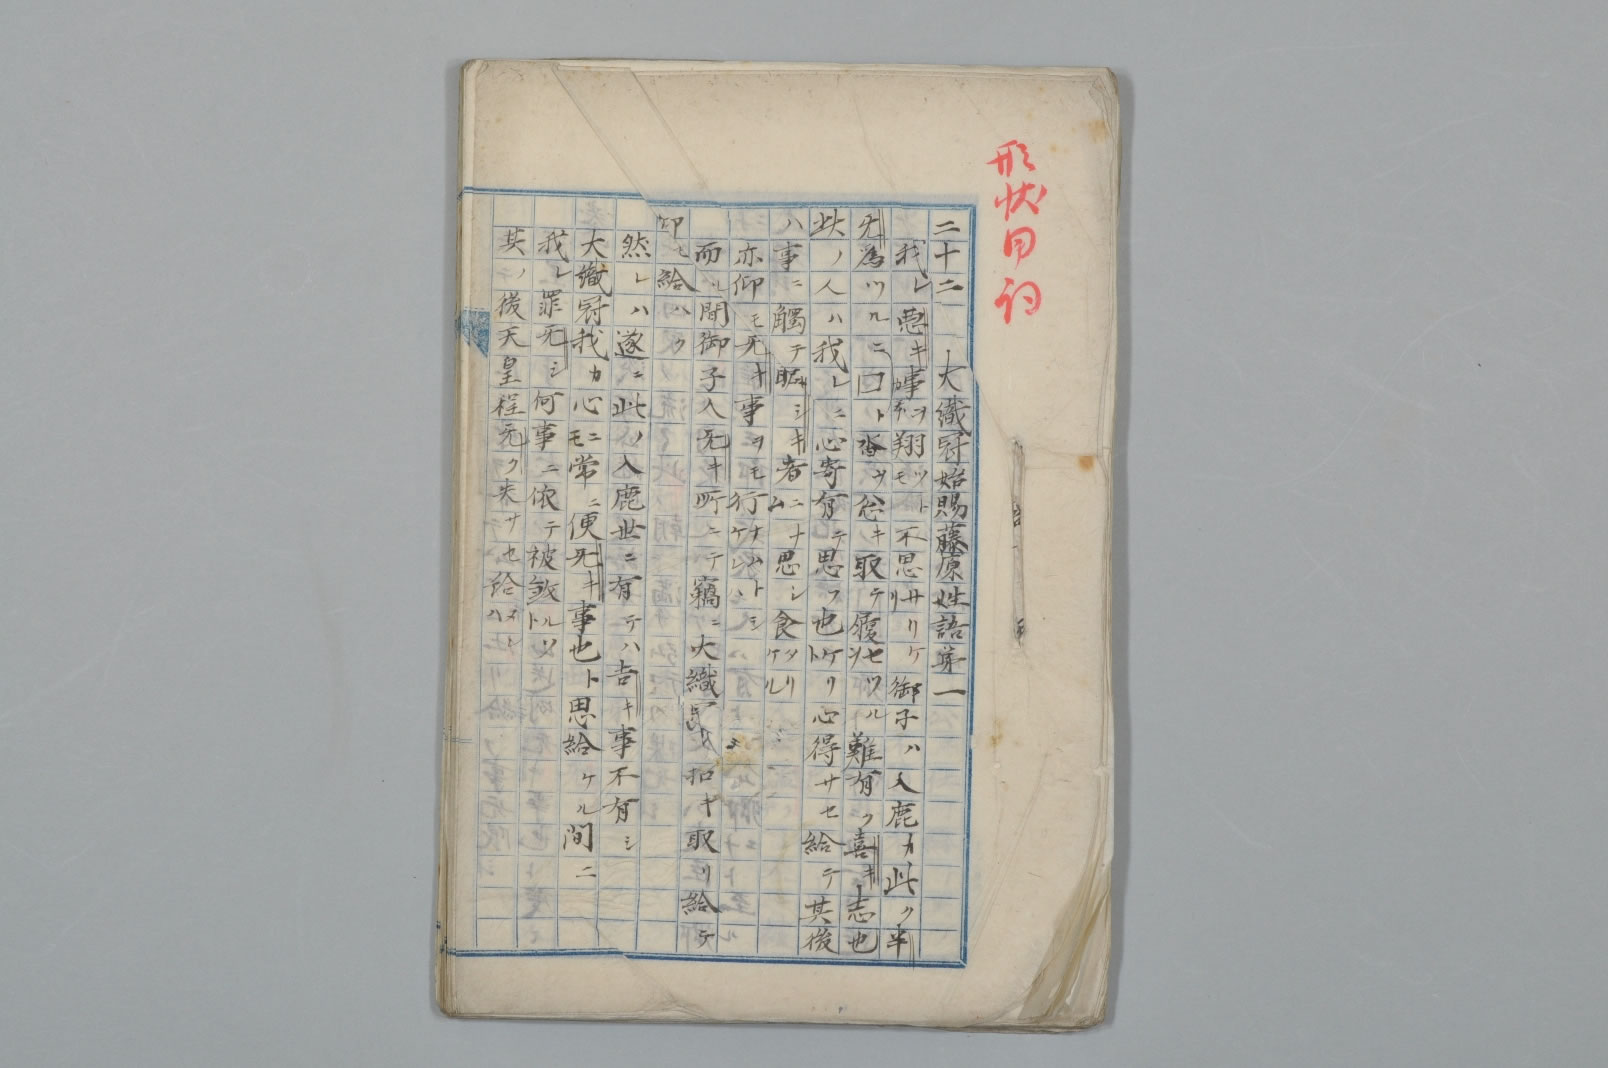 形状同詞
二十二 大織冠始賜藤原姓語第一
我レ悪キ事ヲ翔ツト不思サリケリ御子ハ入鹿カ此ク半
无為ツルニ曰ト沓ヲ忩キ取テ履セツル難有ク喜キ志也
此ノ人ハ我レニ心寄有テ思フ也ケリト心得サセ給テ其後
ハ事ニ觸テ昵シキ者ニナム思シ食タリケル
亦仰モ无キ事ヲモ行ナヒケレハ
而ル間御子入无キ所ニテ竊ニ大織冠ヲ招キ取リ給テ
仰セ給ハク
然レハ遂ニ此ノ入鹿世ニ有テハ吉キ事不有シ
大織冠我カ心ニモ常ニ便无キ事也ト思給ケル間ニ
我レ罪无シ何事ニ依テ被敓ルソト
其ノ後天皇程无ク失サセ給